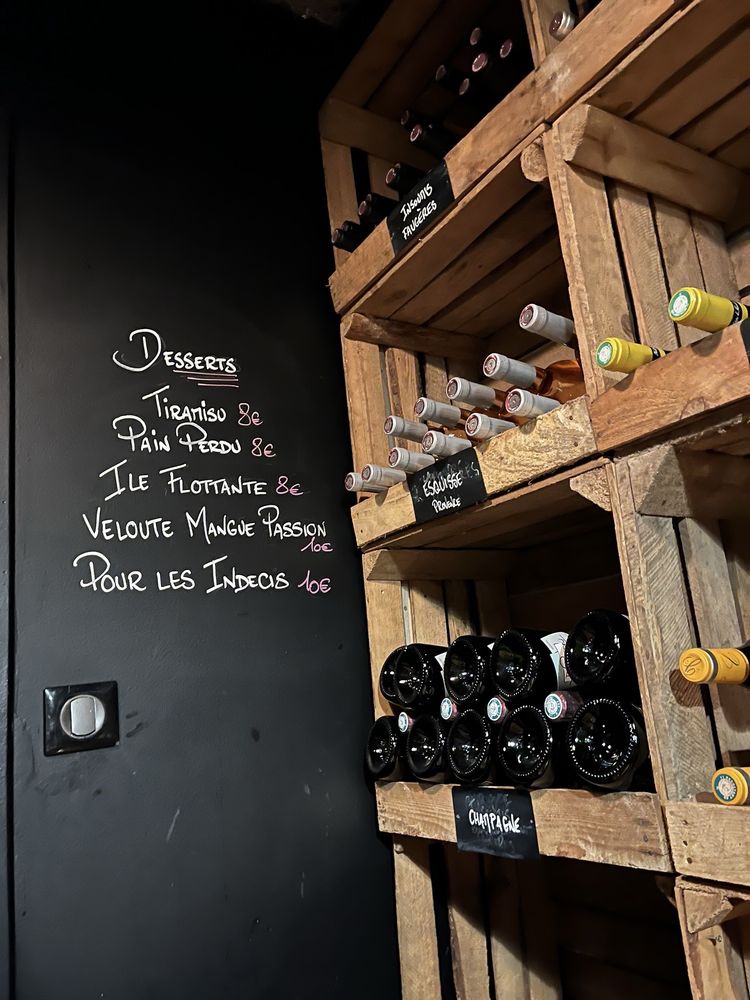 Desserts
Tiramisu 8€
Pain Perdu 8€
Ile Flottante 8€
Veloute Mangue Passion
10€
Pour les Indecis 10€
Insoumis
Faugères
Esquisse
Provence
Champagne